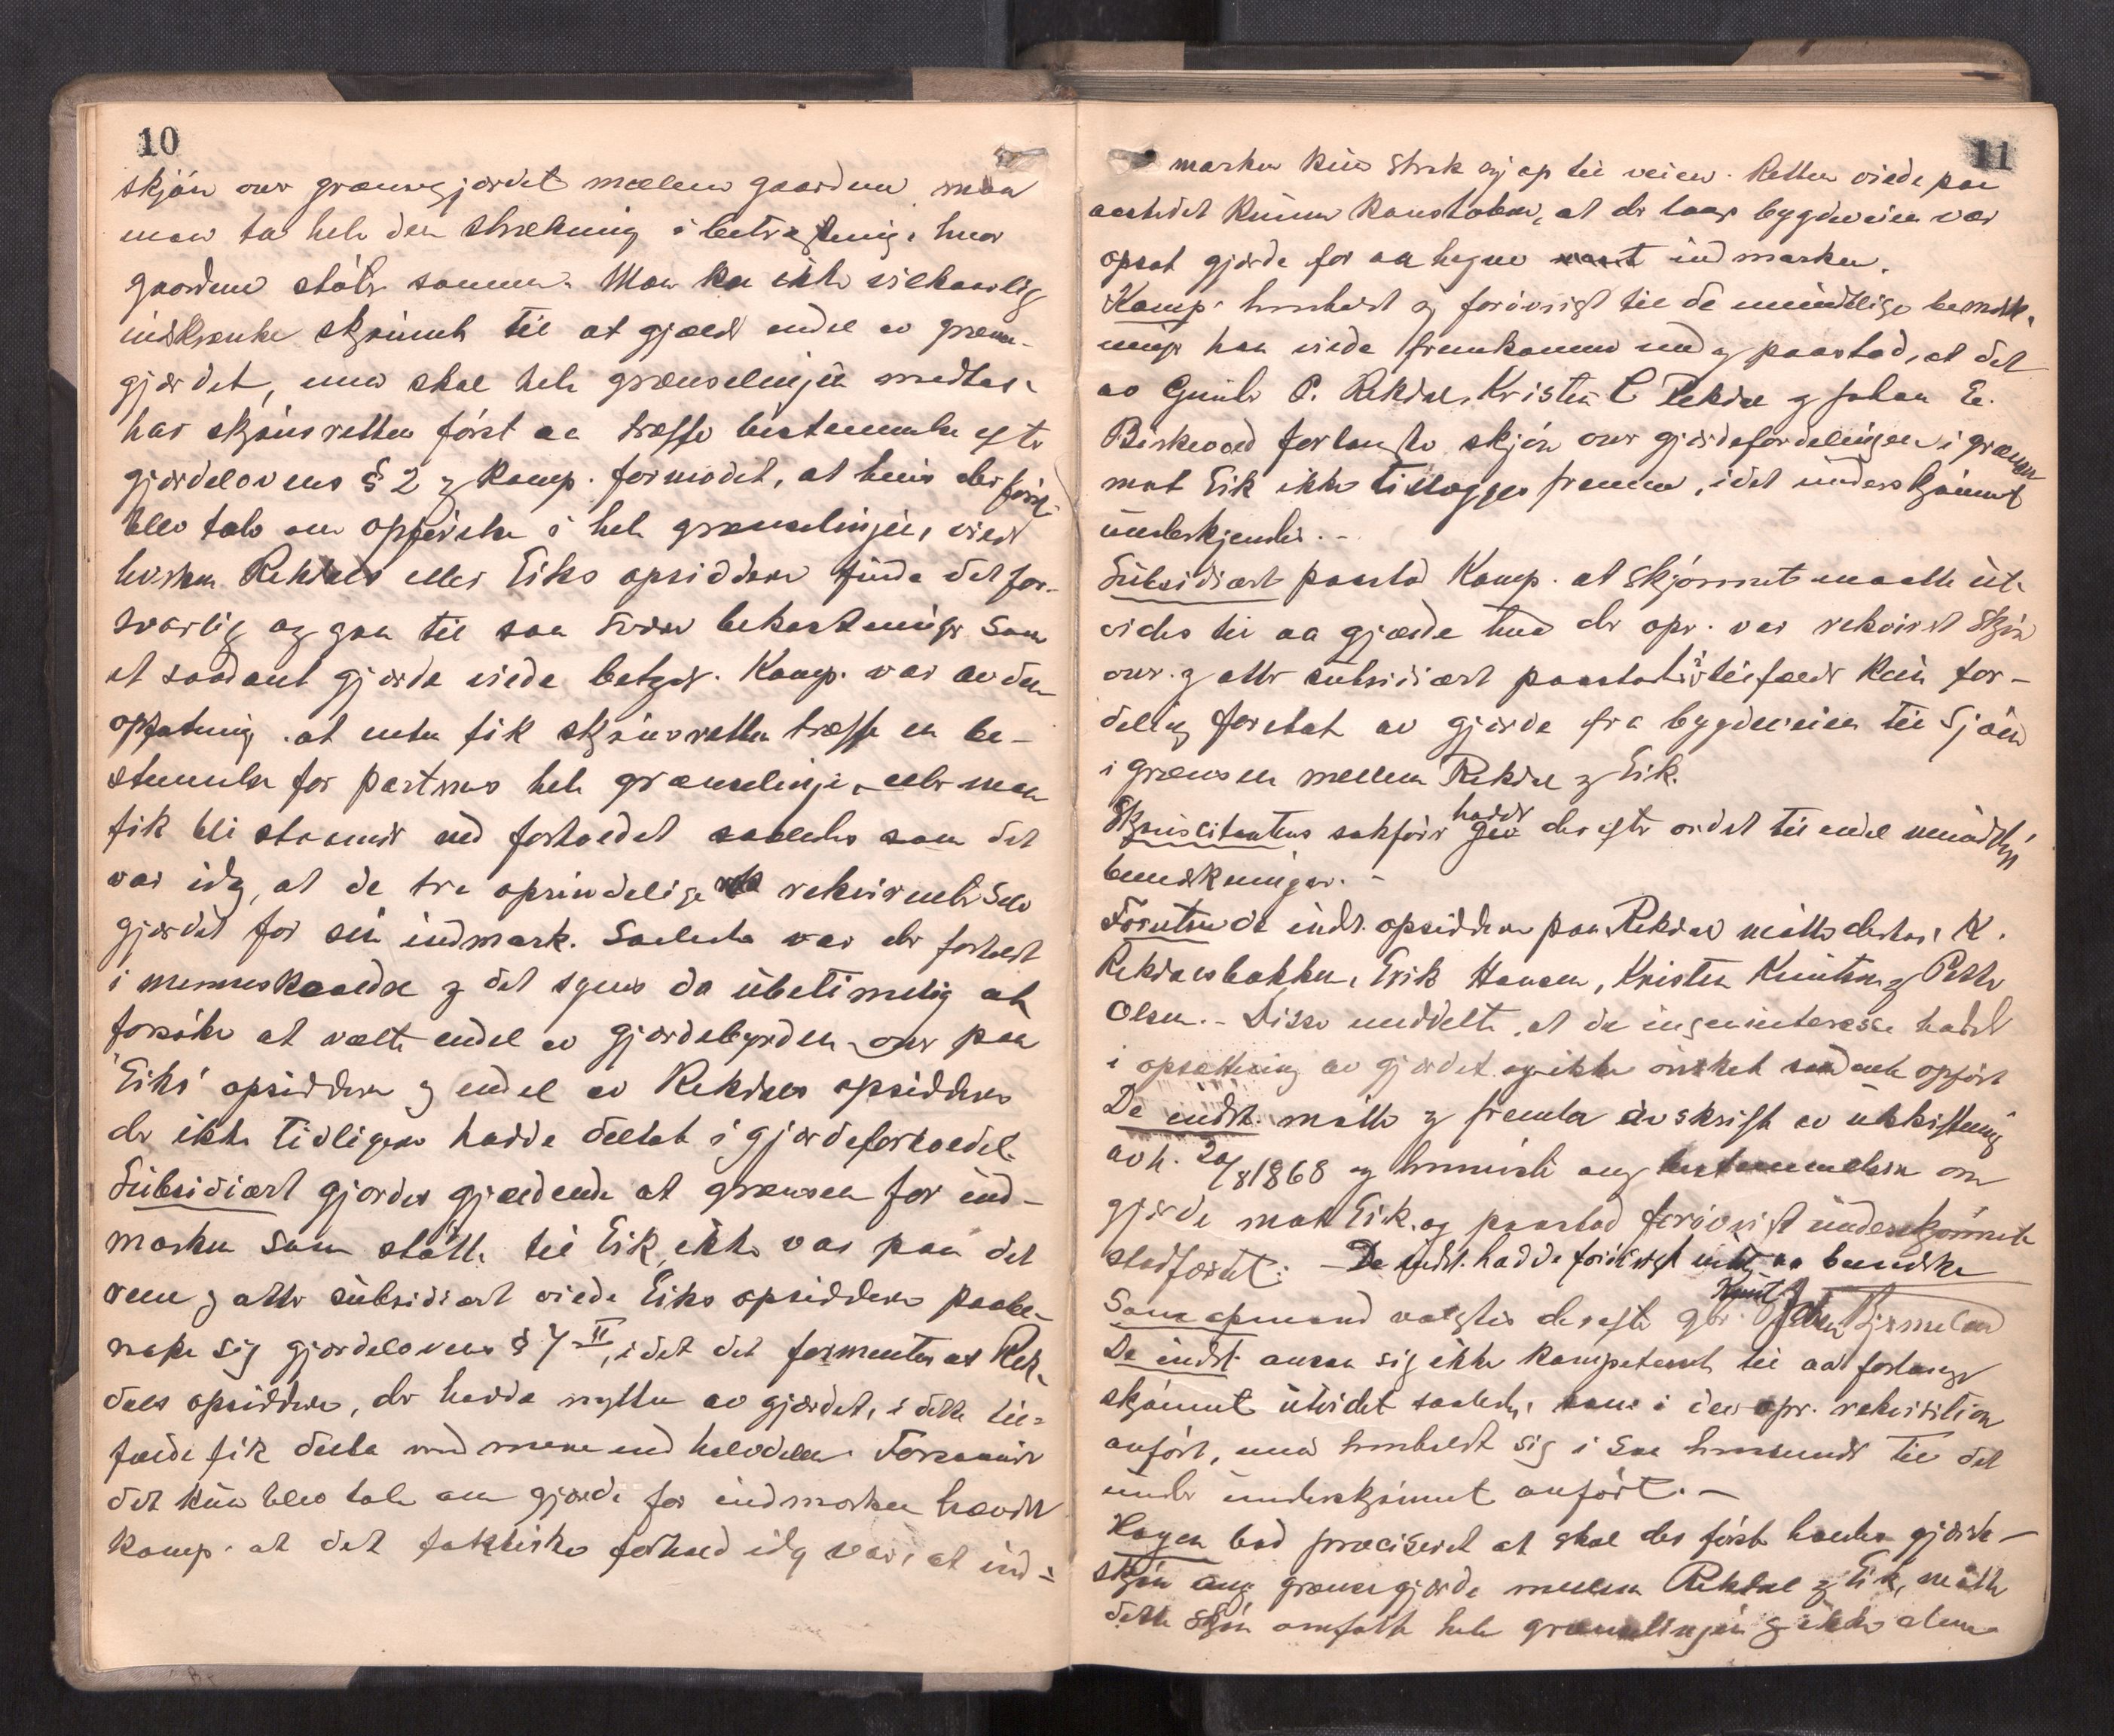 10
skjøn over grænsegjærdet mellem gaardene maa
man ta hele den strækning i betragtning, hvor
gaardene støter sammen. Man kan ikke vilkaarlig
indskrænke skjønnet til at gjælde endel av grænse-
gjærdet, men skal hele grænselinjen medtas,
har skjønsretten først aa træffe bestemmelse efter
gjærdelovens § 2 og Komp. formodet, at hvis der først
blev tale om opførelse i hele grænselinjen, vilde
hverken Rekdals eller Eiks opsiddere finde det for-
svarlig og gaa til saa svære bekostninger som
et saadant gjærde vilde betyde. Komp. var av den
opfatning, at enten fik skjønsretten træffe en be-
stemmelse for partenes hele grænselinje, eller man
fik bli staaende ved forholdet saaledes som det
var idag, at de tre oprindelige rekvirenter selv
gjærdet for sin indmark. Saaledes var der forholdt
i menneskealdre og det synes da ubetimelig at
forsøke at vælte endel av gjærdebyrden over paa
Eiks opsiddere og endel av Rekdals opsiddere
der ikke tidligere hadde deltat i gjærdeforholdet.
Subsidiært gjordes gjældende at grænsen for ind-
marken som støtte til Eik, ikke var paa det
rene og atter subsidiært vilde Eiks opsiddere paabe-
rope sig gjærdelovens § 7 II, idet det formentes at Rek-
dals opsiddere, der hadde nytten av gjærdet, i dette til-
fælde fik delta med mere end halvdelen. Forsaavidt
det kun blev tale om gjærde for indmarken hævdet
Komp. at det faktiske forhold idag var, at ind-
11
marken kun strak sig op til veien. Retten vilde paa
aastedet kunne konstatere, at der langs bygdeveien var
opsat gjærde for aa hegne indmarken.
Komp. henholdt sig forøvrigt til de mundtlige bemerk-
ninger han vilde fremkomme med og paastod, at det
av Gunder P. Rekdal, Kristen C Rekdal og Johan E.
Birkevold forlangte skjøn over gjærdefordelingen i grænsen
mot Eik ikke tillægges fremme, idet underskjønnet
underkjendes. -
Subsidiært paastod Komp. at skjønnet maatte ut-
vides til aa gjælde hvad der opr. var rekvirert skjøn
over og atter subsidiært paastodes i tilfælde kun for-
deling foretat av gjærde fra bygdeveien til sjøen
i grænsen mellem Rekdal og Eik.
Skjønscitantens sakfører hadde derefter ordet til endel mundtlige
bemerkninger. -
Foruten de indst. opsiddere paa Rekdal møtte desuten K.
Rekdalsbakken, Erik Hansen, Kristen Knutsen og Petter
Olsen. - Disse meddelte, at de ingen interesse hadde
i opsættning av gjærdet og ikke ønsket saadant opført
De indst. møtte og fremla avskrift av utskiftning
avh. 20/8 1868 og henviste ang bestemmelsen om
gjærde mot Eik. og paastod forøvrigt underskjønnet
stadfæstet: - De indst. hadde forøvrigt intet aa bemerke
Som opmand valgtes derefter gbr. Knut
De indst. ansaa sig ikke kompetent til aa forlange
skjønnet utvidet saaledes, som i den opr. rekvisition
anført, men henholdt sig i saa henseende til det
under underskjønnet anført. -
Hagen bad præciseret at skal der først holdes gjærde-
skjøn ang grænsegjærde mellem Rekdal og Eik, maatte
dette skjøn omfatte hele grænselinjen og ikke alene